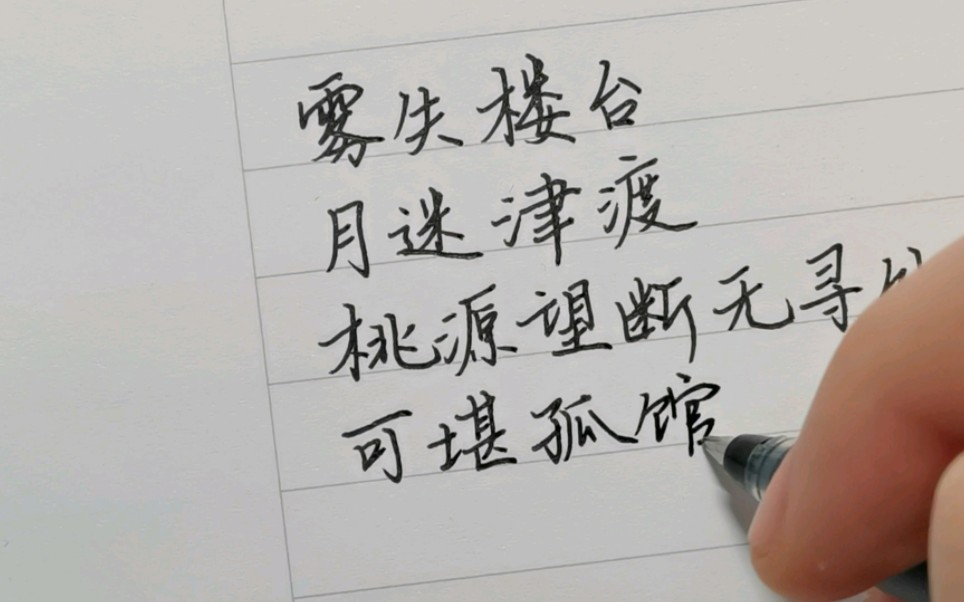 雾失楼台
月迷津渡
桃源望断无寻
可堪孤馆